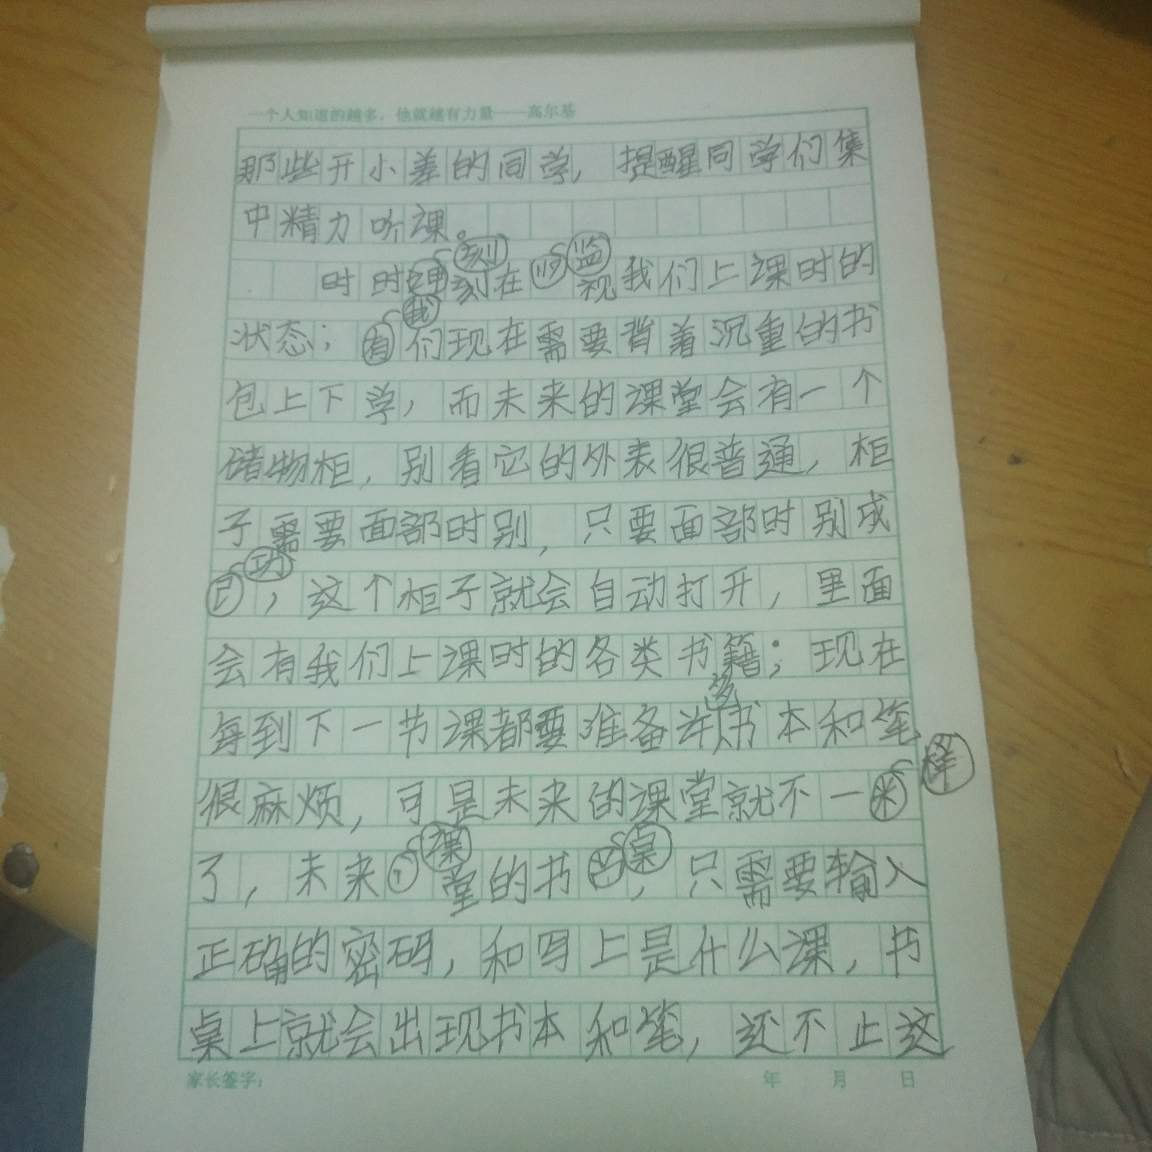 一个人知道的越多，他就越有力量——高尔基
那些开小差的同学，提醒同学们集
中精力听课。
时时刻刻在监视我们上课时的
状态；我们现在需要背着沉重的书
包上下学，而未来的课堂会有一个
储物柜，别看它的外表很普通，柜
子需要面部时别，只要面部时别成
功，这个柜子就会自动打开，里面
会有我们上课时的各类书籍；现在
每到下一节课都要准备许多书本和笔
很麻烦，可是未来的课堂就不一样
了，未来课堂的书桌，只需要输入
正确的密码，和写上是什么课，书
桌上就会出现书本和笔，还不止这
家长签字： 年 月 日